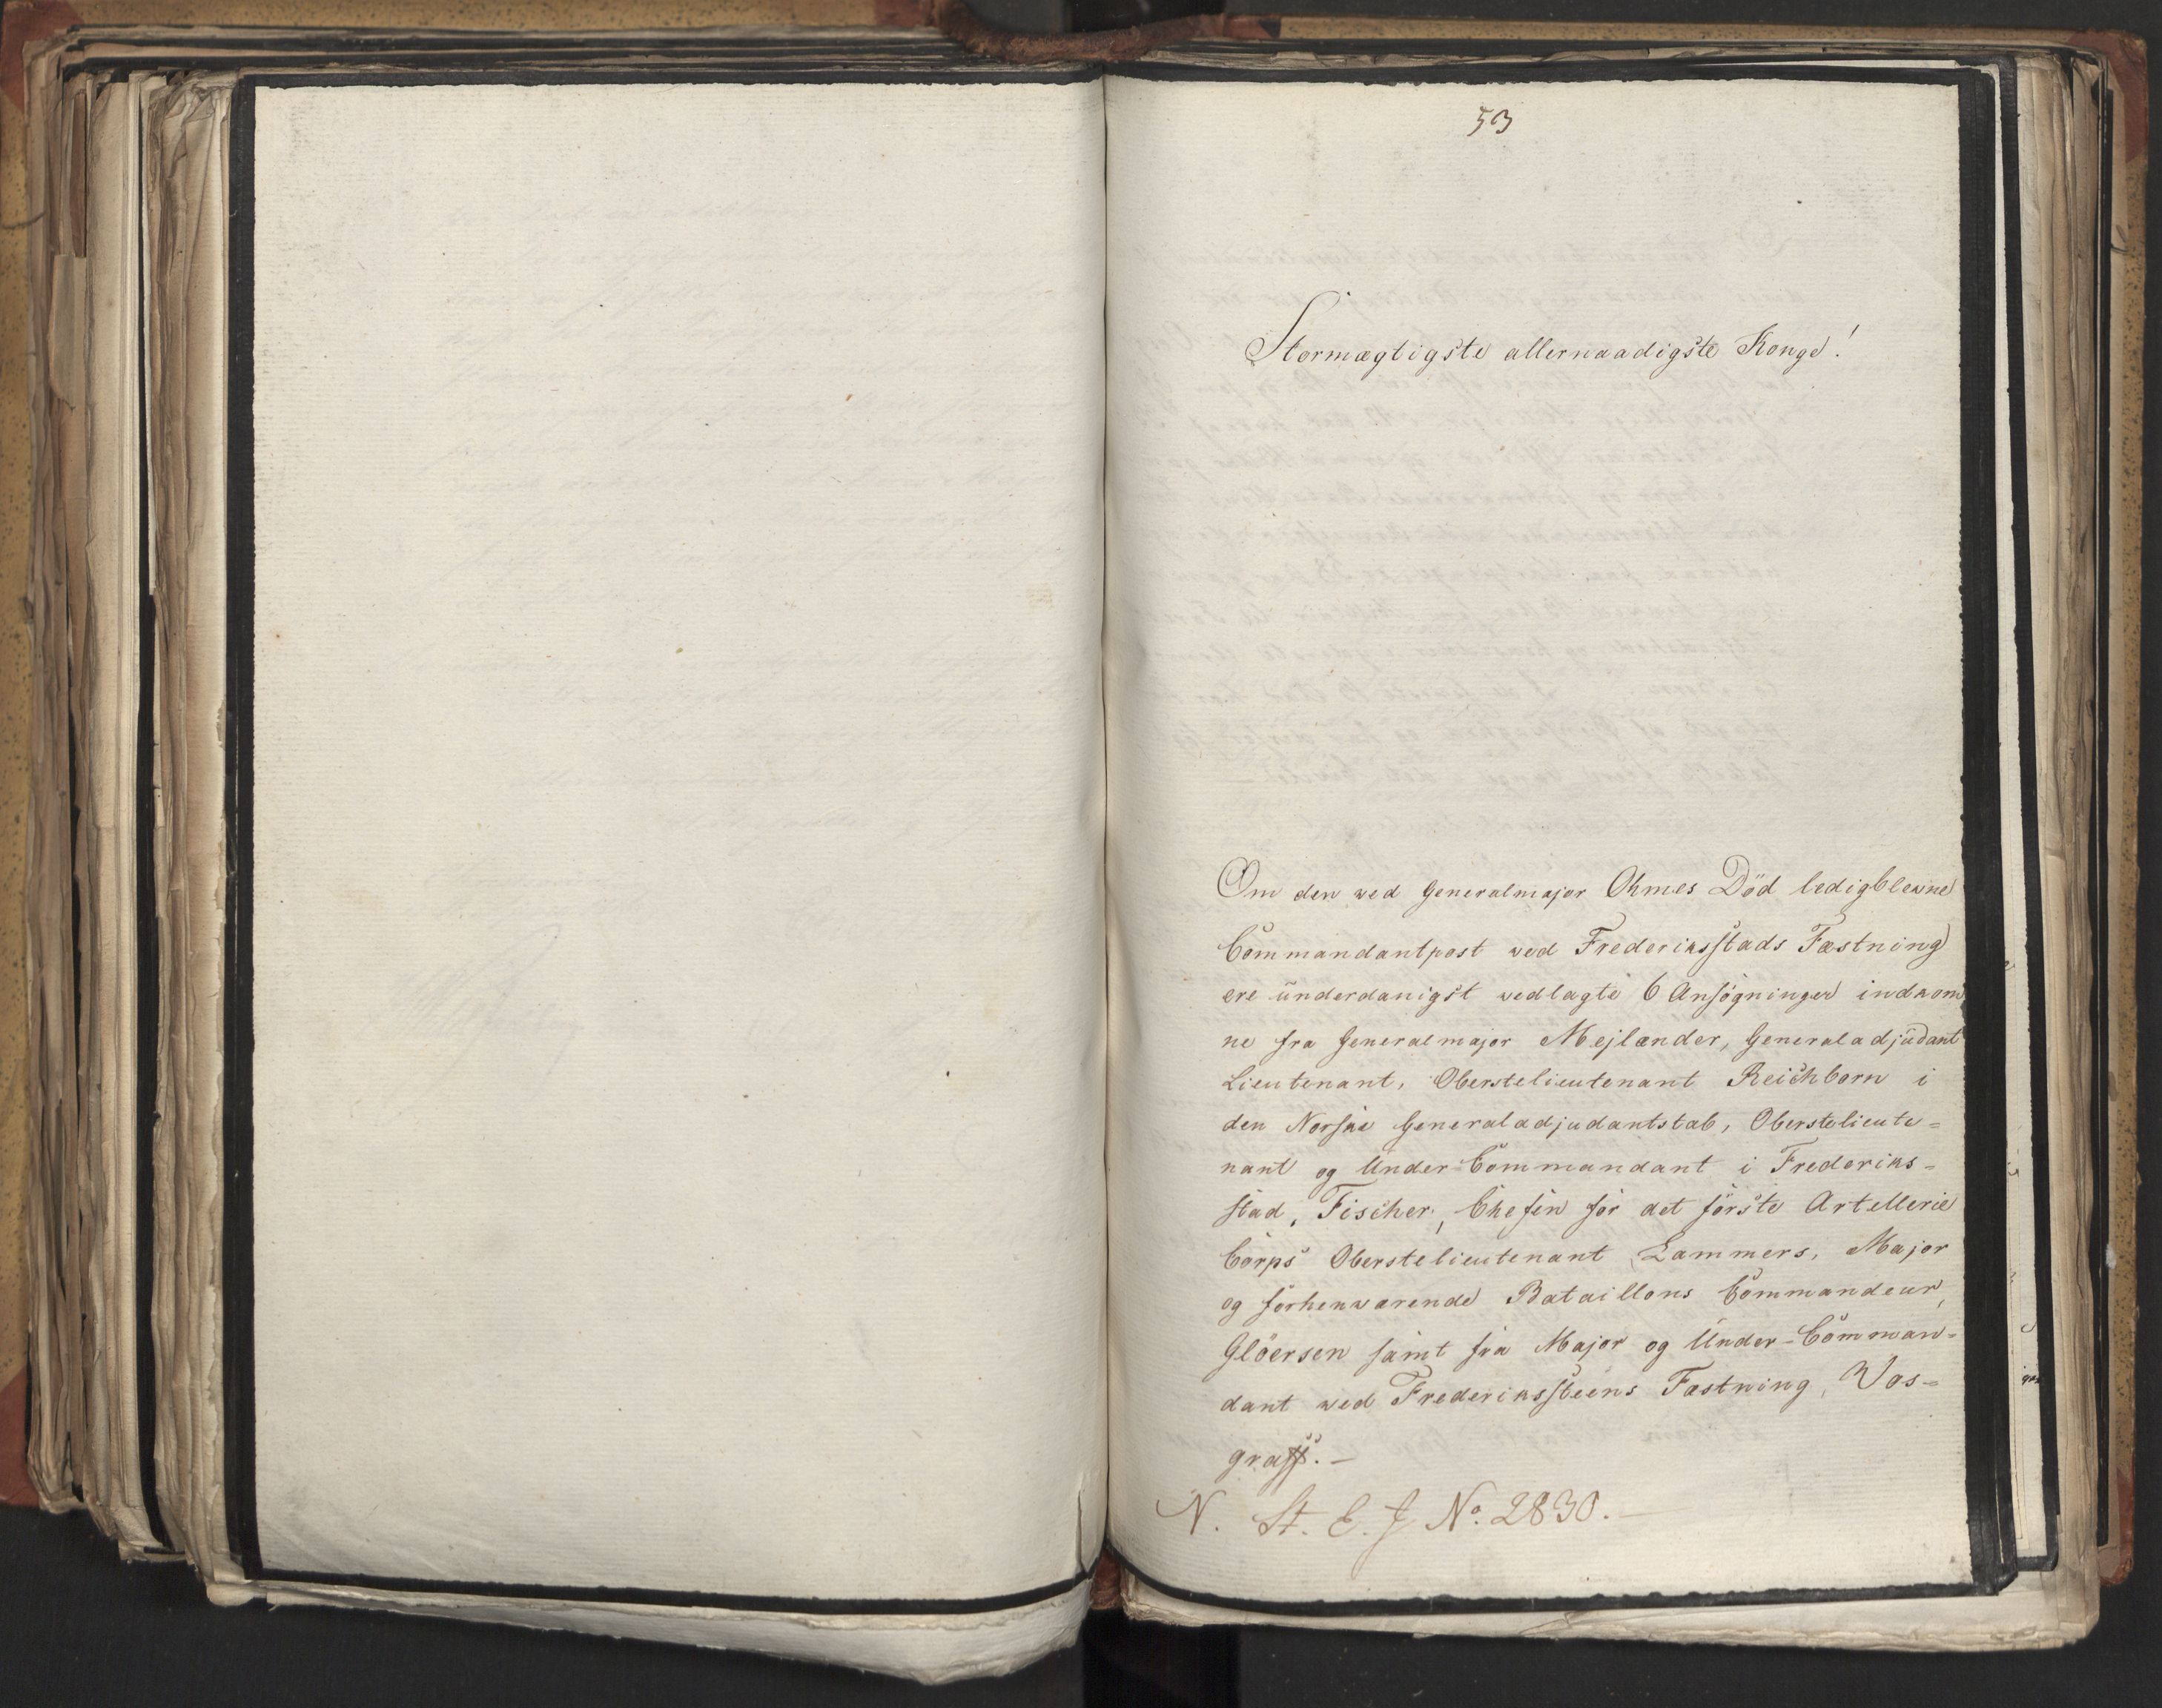 53
Stormægtigste allernaadigste Konge!
Om den ved Generalmajor Ohmes Död ledigblevne
Commandantpost ved Frederiksstads Fæstning
ere underdanigst vedlagte 6 Ansøgninger indkom
ne fra Generalmajor Mejlænder, Generaladjudant
Lieutenant, Oberstelieutenant Reichborn i
den Norske Generaladjudantstab, Oberstelieute=
nant og Under-Commandant i Frederiks=
stad, Fischer, Chefen for det förste Artellerie
Corps Oberstelieutenant Lammers, Major
og forhenværende Bataillons Commandeur,
Glöersen samt fra Major og Under-Comman=
dant ved Frederikssteens Fæstning, Vos=
graff.—
N. St. E. J No. 2830.—